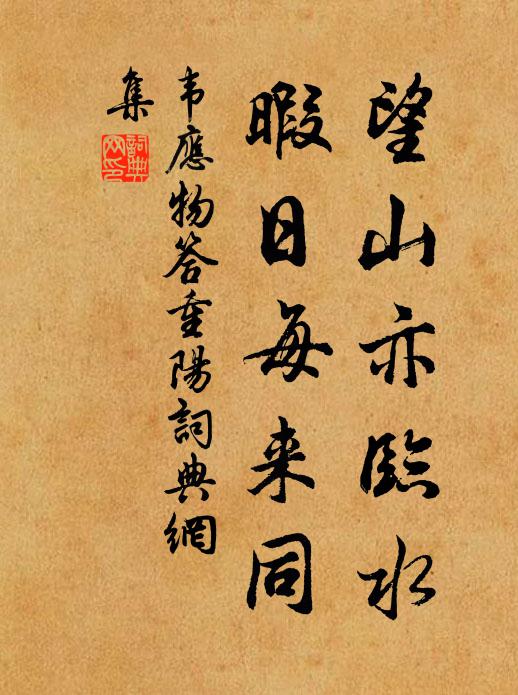 望山亦臨水
暇日每来同
韦應物答重陽詞典網
集
詞典
网印